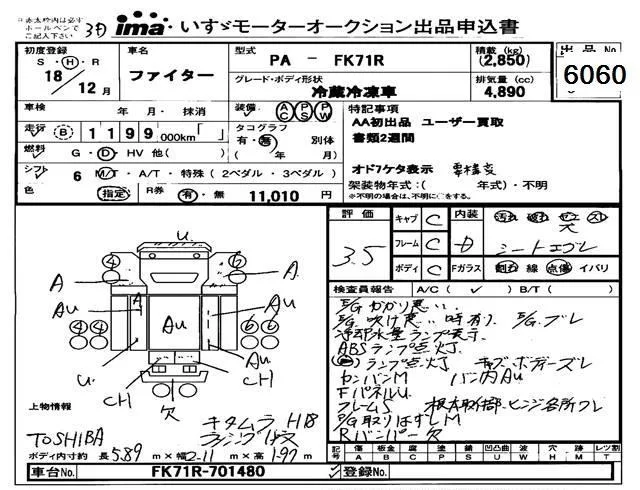 赤太枠内は必ず
ボールペンで
ご記入下さい
ima いすゞモーターオークション出品申込書
初度登録
S・H・R
18
12月
車名
ファイター
型式
PA - FK71R
積載 (kg)
(2,850)
出品No
6060
グレード・ボディ形状
冷蔵冷凍車
排気量 (cc)
4,890
車検
年 月・抹消
装備
AC PS PW
特記事項
AA初出品 ユーザー買取
書類2週間
走行 B 1199 000km「 」
タコグラフ
有・無 別体
( 年 月)
燃料
G・D・HV 他( )
オドケタ表示 要構変
シフト 6 M/T・A/T・特殊(2ペダル・3ペダル)
架装物年式:( 年式)・不明
※不明の場合は、不明に○をする。
色 (指定) R券 有・無 11,010 円
評価
3.5
キャブ C
フレーム C
ボディ C
内装 D
Fガラス
シートエグレ
線 点傷 イバリ
検査員報告 A/C( ✓ ) B/T( )
E/Gかかり悪い..
E/G吹け悪い..時有り. E/G.ブレ
冷却水量ランプ表示
ABSランプ点灯.
ランプ点灯. キャブ.ボディーズレ
カンバンM バン内AU
FパネルU.
フレームS 根本取付部.ヒンジ各所ワレ
P/G取りはずしM
Rバンパー欠
U.
4 4
A A
AU A AU
AU
4 4 6 6
U. AU
CH CH
欠
上物情報
TOSHIBA
キタムラ H18
ボディ内寸約 長589 m×幅2.11 m×高1.97 m
記号
傷 板金 腐 塗 錆 凹凸曲 波 穴 跡 レツ割
A B C P S U W H M T
車台No. FK71R-701480
登録No.